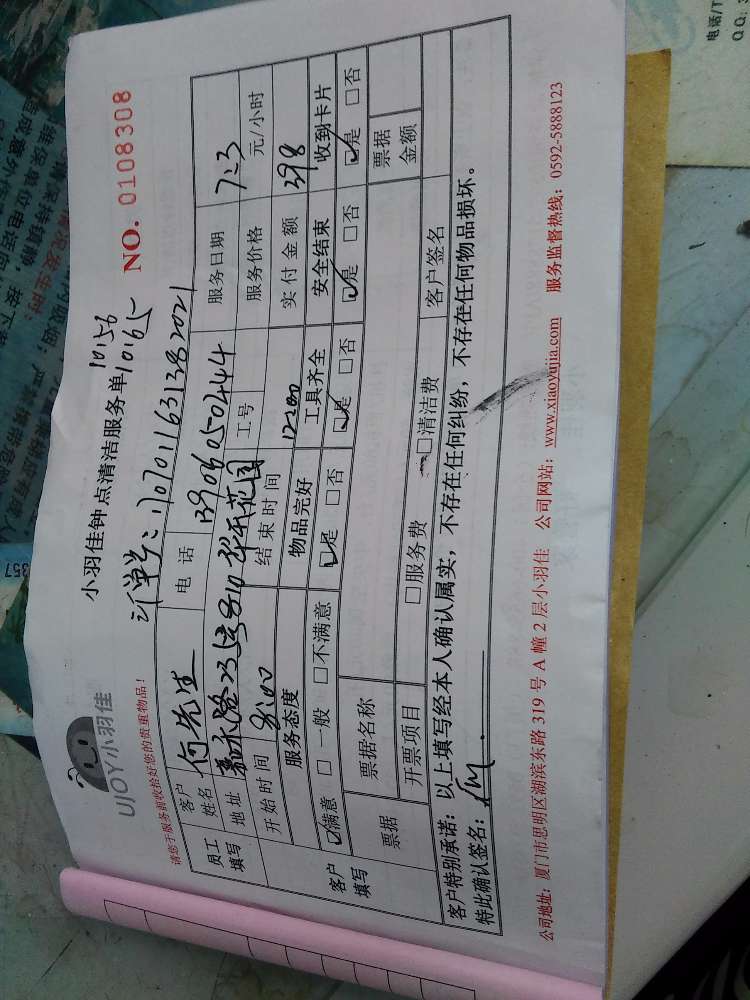 UJOY小羽佳
小羽佳钟点清洁服务单
NO. 0108308
请您于服务前收拾好您的贵重物品!
员工填写
客户姓名 何先生 电话 服务日期 7.3
地址 工号 服务价格 元/小时
开始时间 8:00 结束时间 12:00 实付金额 398
客户填写
服务态度 物品完好 工具齐全 安全结束 收到卡片
☑满意 □一般 □不满意 ☑是 □否 ☑是 □否 ☑是 □否 ☑是 □否
票据 票据名称 票据金额
开票项目 □服务费 □清洁费 客户签名
客户特别承诺:以上填写经本人确认属实,不存在任何纠纷,不存在任何物品损坏。
特此确认签名:
公司地址:厦门市思明区湖滨东路 319 号 A 幢 2 层小羽佳 公司网站:www.xiaoyujia.com 服务监督热线:0592-5888123